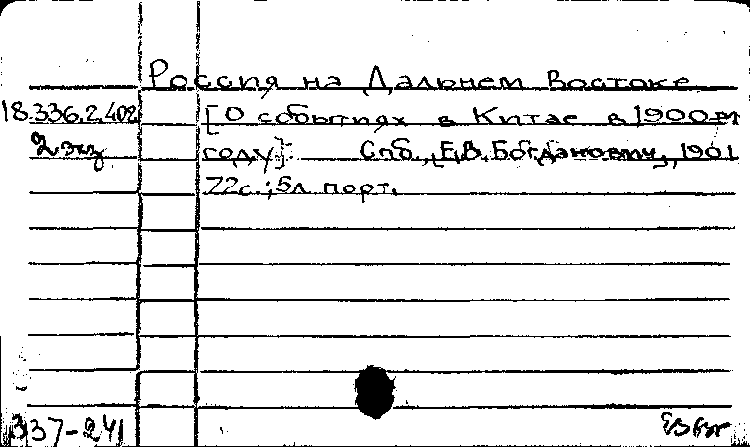 Россия на Дальнем Востоке
18.336.2.402 [О событиях в Китае в 1900-м
2 экз году]. Спб., [Е.В. Богданович], 1901
72с.; 5л. порт.
337-241